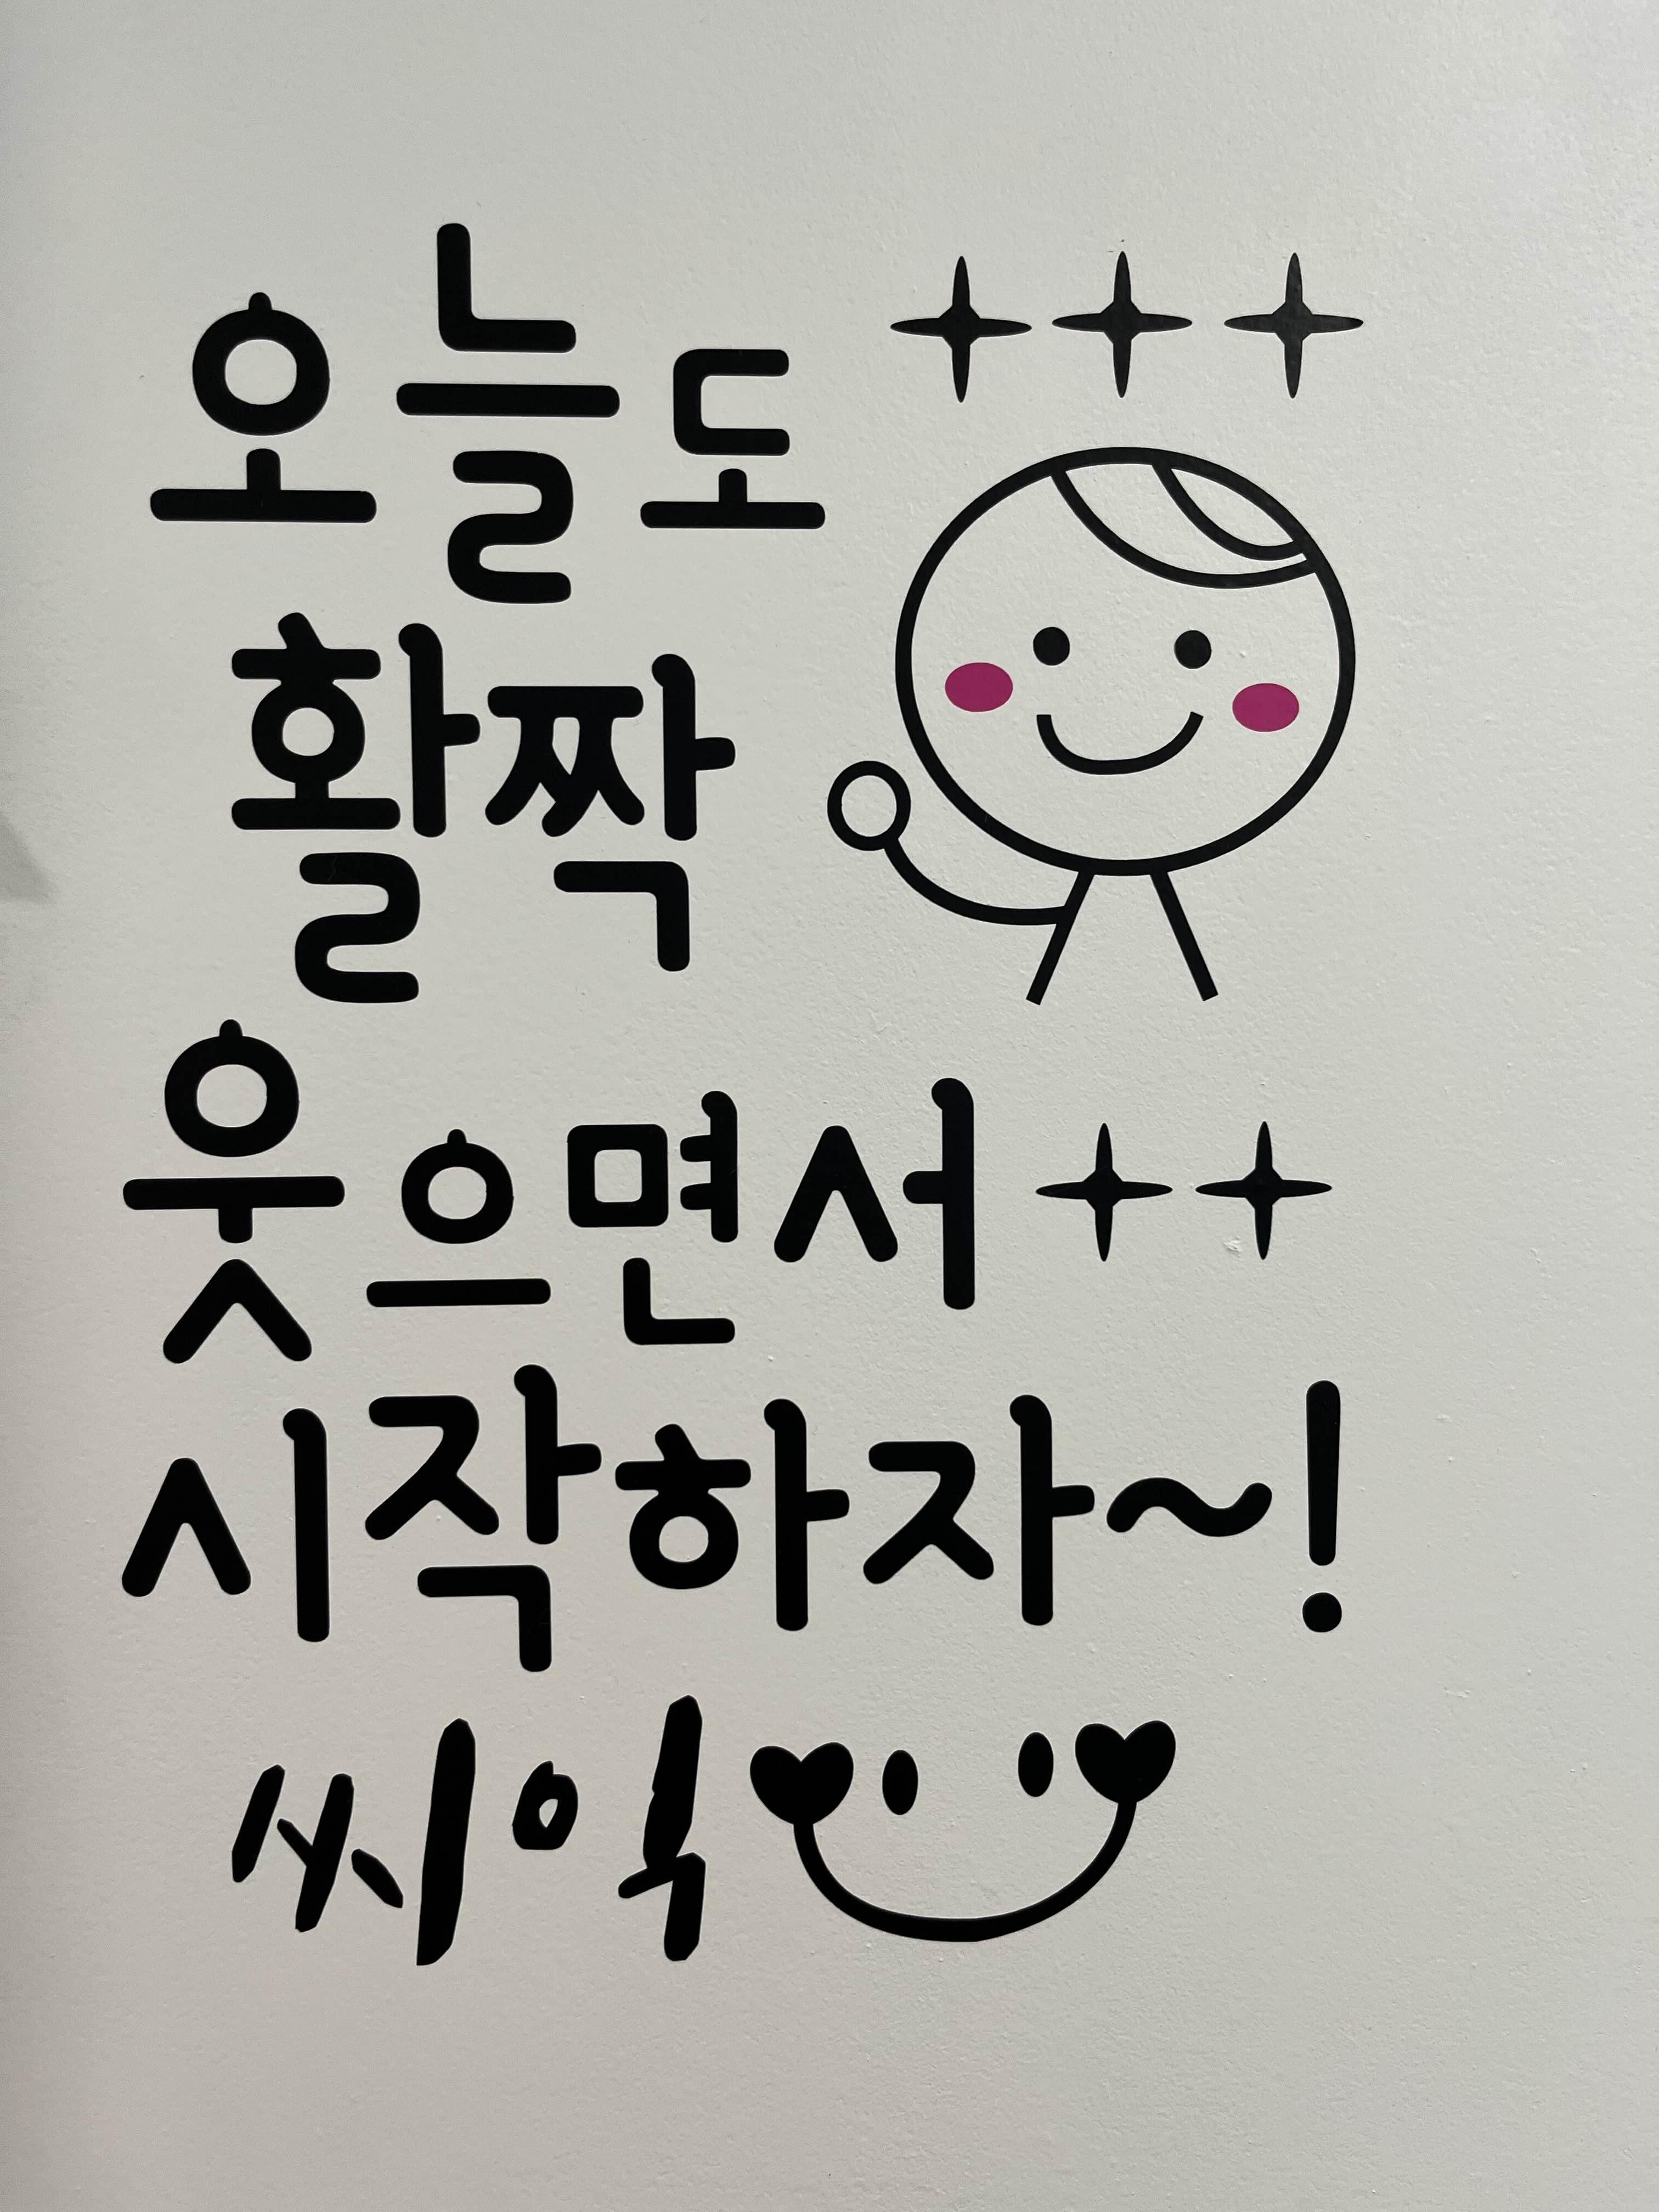 오늘도
활짝
웃으면서
시작하자~!
씨익